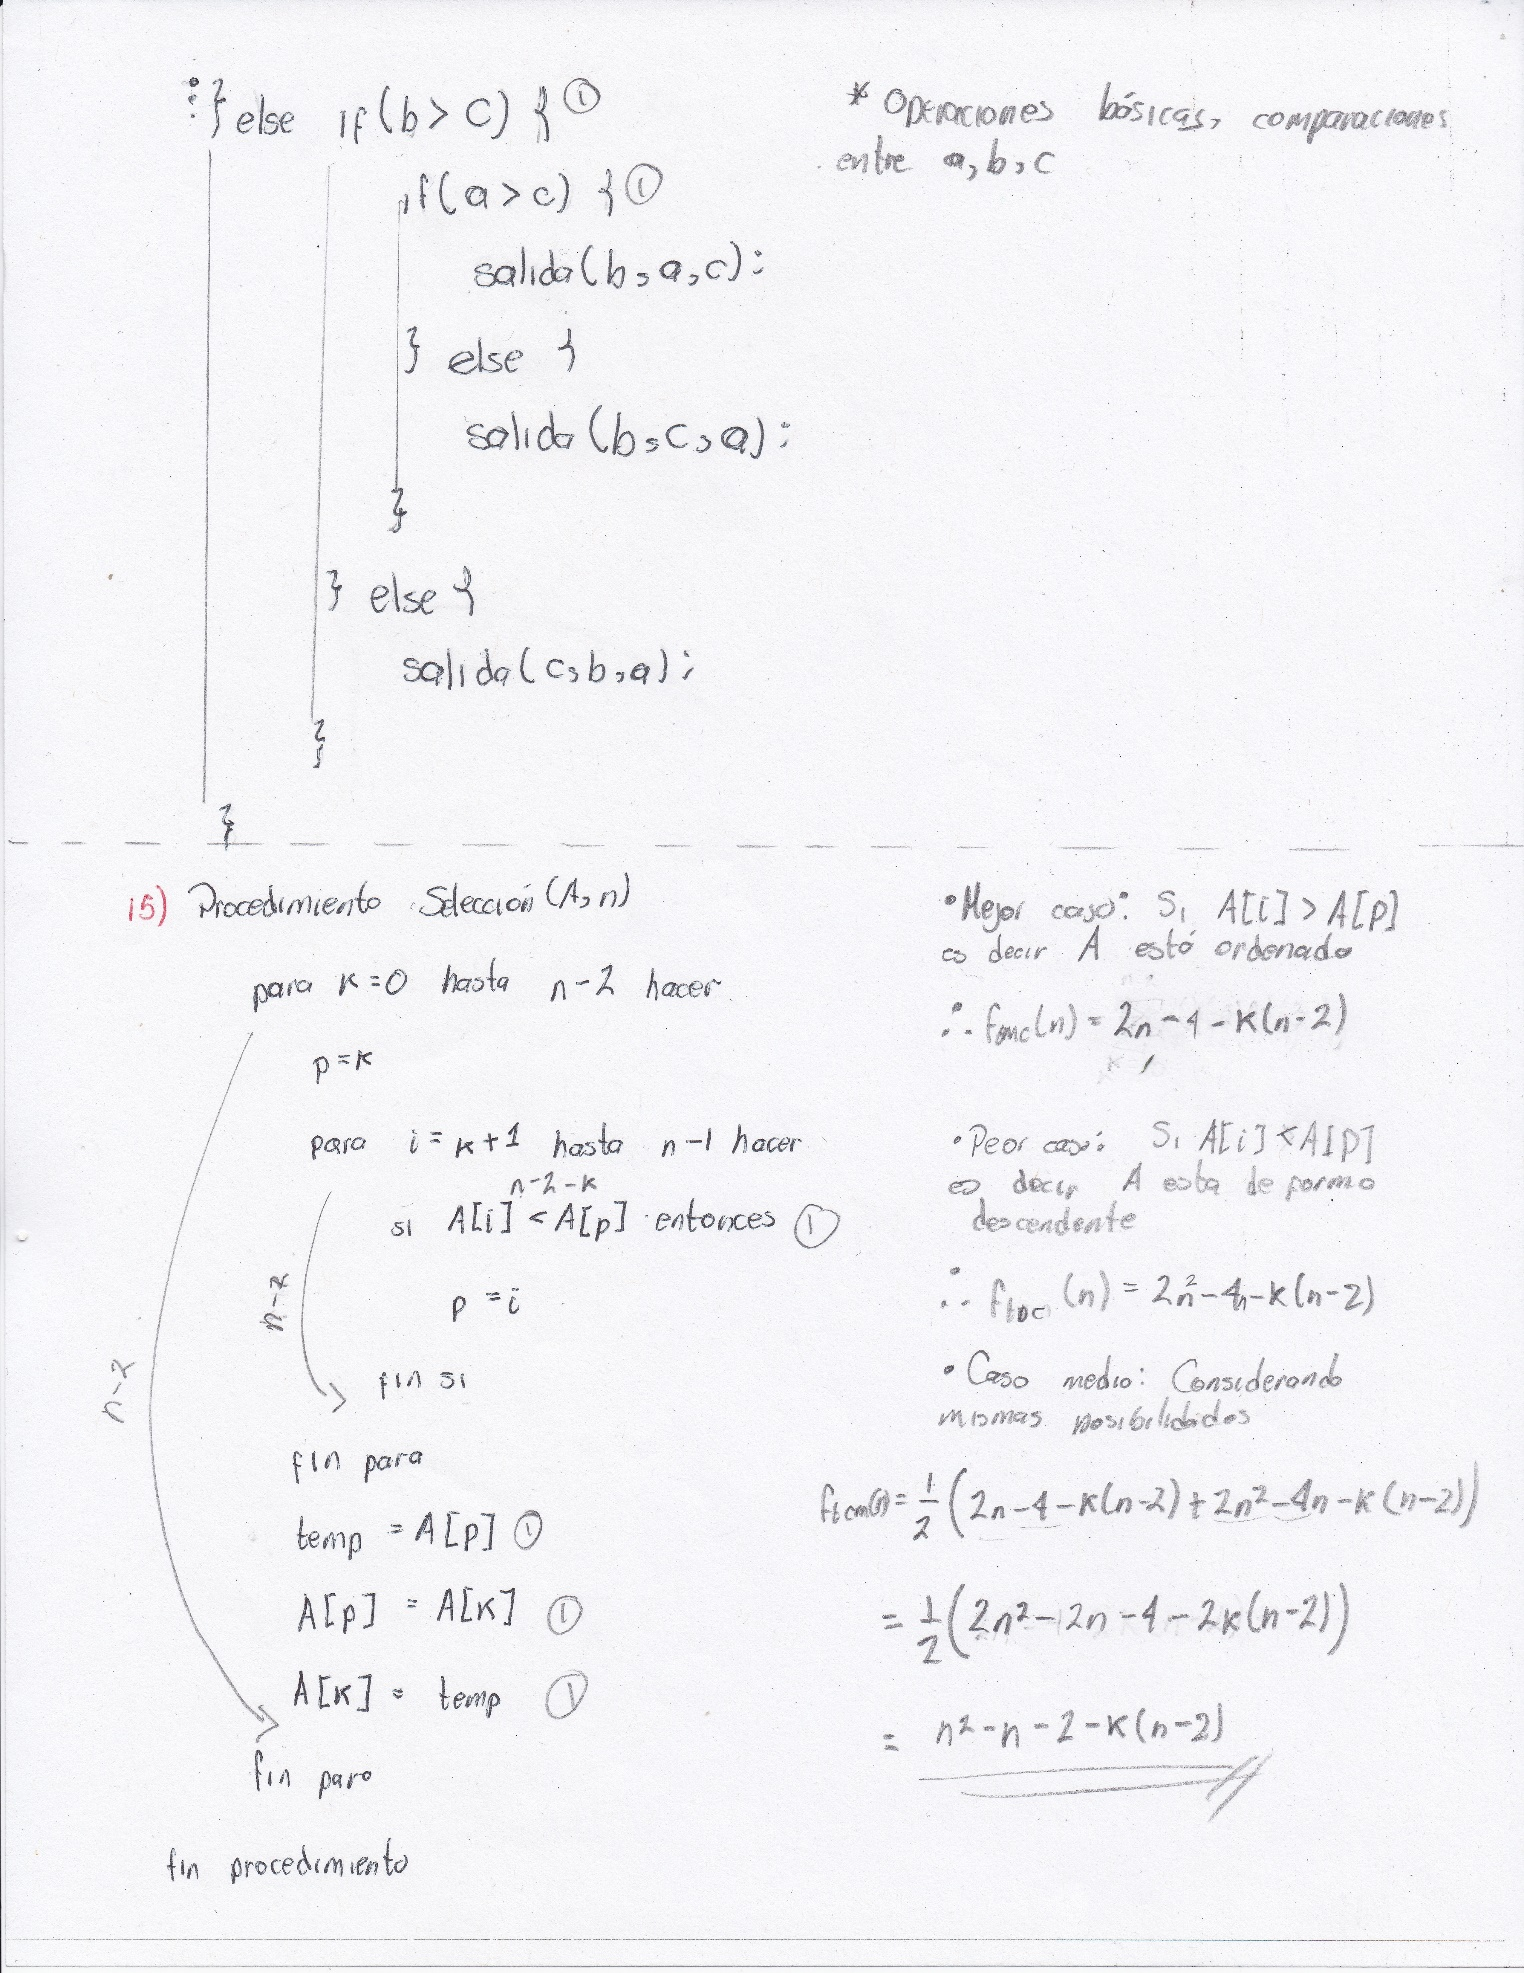 } else if (b > c) { ①
if (a > c) { ①
salida(b, a, c);
} else {
salida(b, c, a);
}
} else {
salida(c, b, a);
}
}
* Operaciones básicas, comparaciones
entre a, b, c
15) Procedimiento Selección (A, n)
para k = 0 hasta n-2 hacer
p = k
para i = k+1 hasta n-1 hacer
n-2-k
si A[i] < A[p] entonces ①
p = i
n-2
fin si
n-2
fin para
temp = A[p] ①
A[p] = A[k] ①
A[k] = temp ①
fin para
fin procedimiento
• Mejor caso: Si A[i] > A[p]
es decir A está ordenado
∴ (n) = 2n - 4 - k(n-2)
• Peor caso: Si A[i] < A[p]
es decir A esta de forma
descendente
∴ (n) = 2n² - 4n - k(n-2)
• Caso medio: Considerando
mismas posibilidades
ftcm(n) = 1/2 (2n - 4 - k(n-2) + 2n² - 4n - k(n-2))
= 1/2 (2n² - 2n - 4 - 2k(n-2))
= n² - n - 2 - k(n-2)